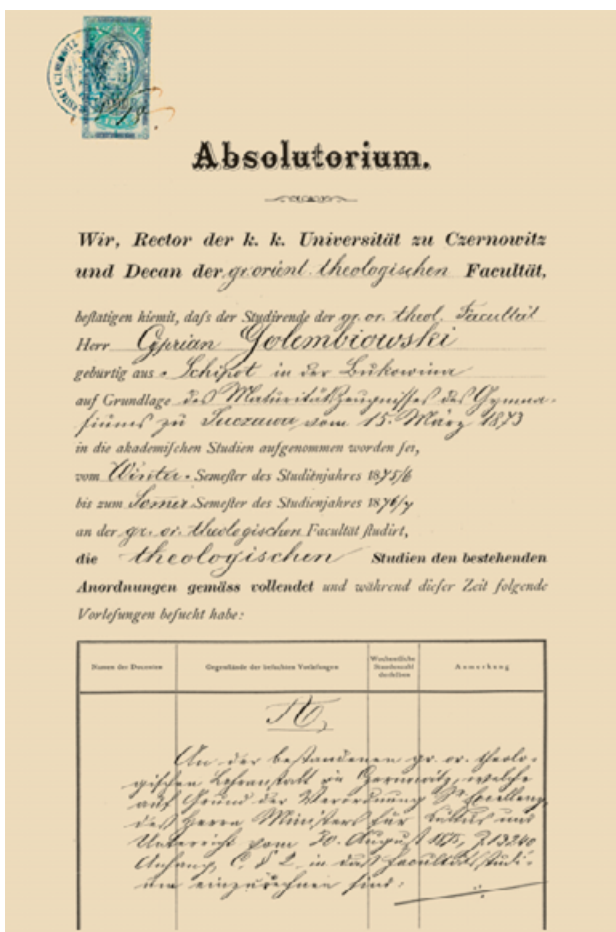 Absolutorium.
Wir, Rector der k. k. Universität zu Czernowitz
und Decan der gr. orient. theologischen Facultät,
beſtatigen hiemit, daſs der Studirende der gr. or. theol. Facultät
Herr Cyprian Golembiowski
geburtig aus Schipot in der Bukowina
auf Grundlage des Maturitätszeugnisses des Gymna-
siums zu Suczawa vom 15. März 1873
in die akademiſchen Studien aufgenommen worden ſei,
vom Winter Semeſter des Studienjahres 1875/6
bis zum Somer Semeſter des Studienjahres 1876/7
an der gr. or. theologischen Facultät ſtudirt,
die theologischen Studien den bestehenden
Anordnungen gemäss vollendet und während dieſer Zeit folgende
Vorleſungen beſucht habe:
Namen der Docenten
Gegenſtände der beſuchten Vorleſungen
Wochentliche
Stundenzahl
derſelben
Anmerkung
An der bestandenen gr. or. theolo-
gischen Lehranstalt in Czernowitz, welche
auf Grund der Verordnung Sr Excellenz
des Herrn Ministers für Cultus und
Unterricht vom 30. August 1875, Z. 13240
Anhang, C. § 2 in das Facultätsstudi-
um einzurechnen sind: